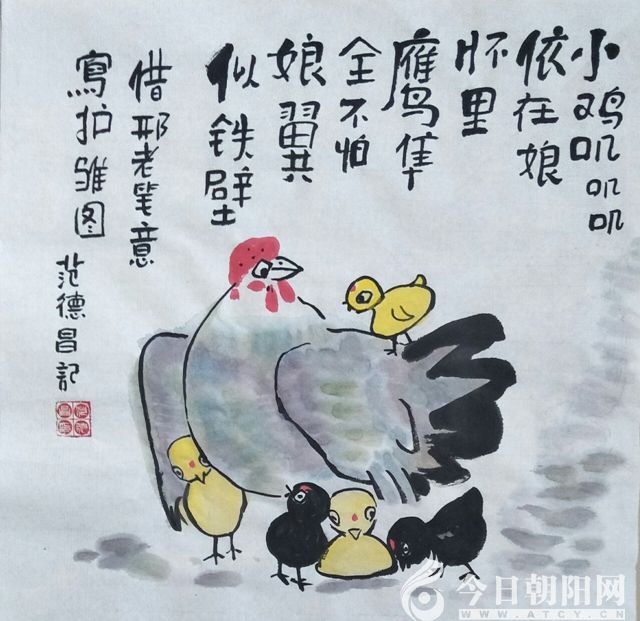 小鸡叽叽叽
依在娘
怀里
鹰隼
全不怕
娘翼
似铁壁
借邢老笔意
寫护雏图
范德昌記
今日朝阳网
WWW.ATCY.CN